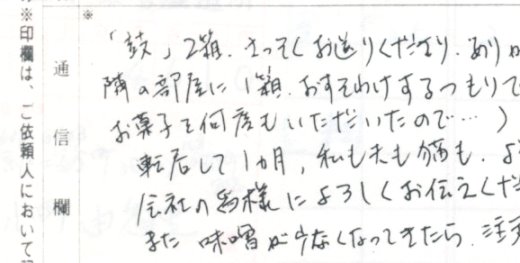 ※印欄は、ご依頼人において
※
通信欄
「鼓」2箱、さっそくお送りくださり、あり
隣の部屋に1箱、おすそわけするつもりで
お菓子を何度もいただいたので…)
転居して1ヵ月、私も夫も猫も、よ
会社の皆様によろしくお伝えくだ
また味噌が少なくなってきたら、注